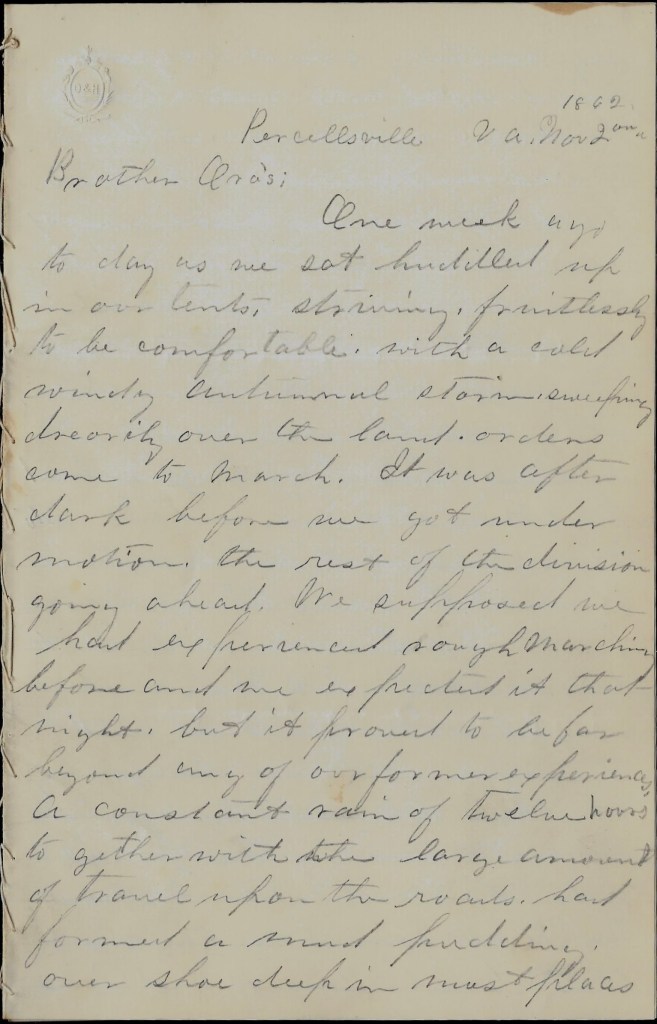 1862.
Percellsville Va. Nov 2
Brother Oras;
One week ago
to day as we sat huddled up
in our tents, striving, fruitlessly
to be comfortable. with a cold
windy autumnal storm, sweeping
drearily over the land. orders
come to march. It was after
dark before we got under
motion. the rest of the division
going ahead. We supposed we
had experienced rough marching
before and we expected it that
night. but it proved to be far
beyond any of our former experiences.
A constant rain of twelve hours
to gether with the large amount
of travel upon the roads. had
formed a mud pudding.
over shoe deep in most places